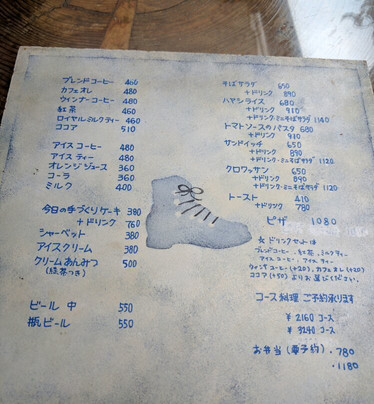 ブレンドコーヒー 460
カフェオレ 480
ウィンナーコーヒー 480
紅茶 460
ロイヤルミルクティー 460
ココア 510
アイスコーヒー 480
アイスティー 480
オレンジジュース 360
コーラ 360
ミルク 400
今日の手づくりケーキ 380
+ドリンク 760
シャーベット 380
アイスクリーム 380
クリームあんみつ 500
(緑茶つき)
ビール 中 550
瓶ビール 550
そばサラダ 650
+ドリンク 890
ハヤシライス 680
+ドリンク 910
+ドリンク・ミニそばサラダ 1140
トマトソースのパスタ 680
+ドリンク 910
サンドイッチ 650
+ドリンク 890
+ドリンク・ミニそばサラダ 1120
クロワッサン 650
+ドリンク 890
+ドリンク・ミニそばサラダ 1120
トースト 410
+ドリンク 780
ピザ 1080
☆ ドリンクセットは
ブレンドコーヒー、紅茶、ミルクティー
アイスコーヒー、アイスティー
ウィンナコーヒー(+20)、カフェオレ(+20)
ココア(+50)よりお選びください。
コース料理 ご予約承ります
¥ 2160 コース
¥ 3240 コース
お弁当(要予約)・780
・1180